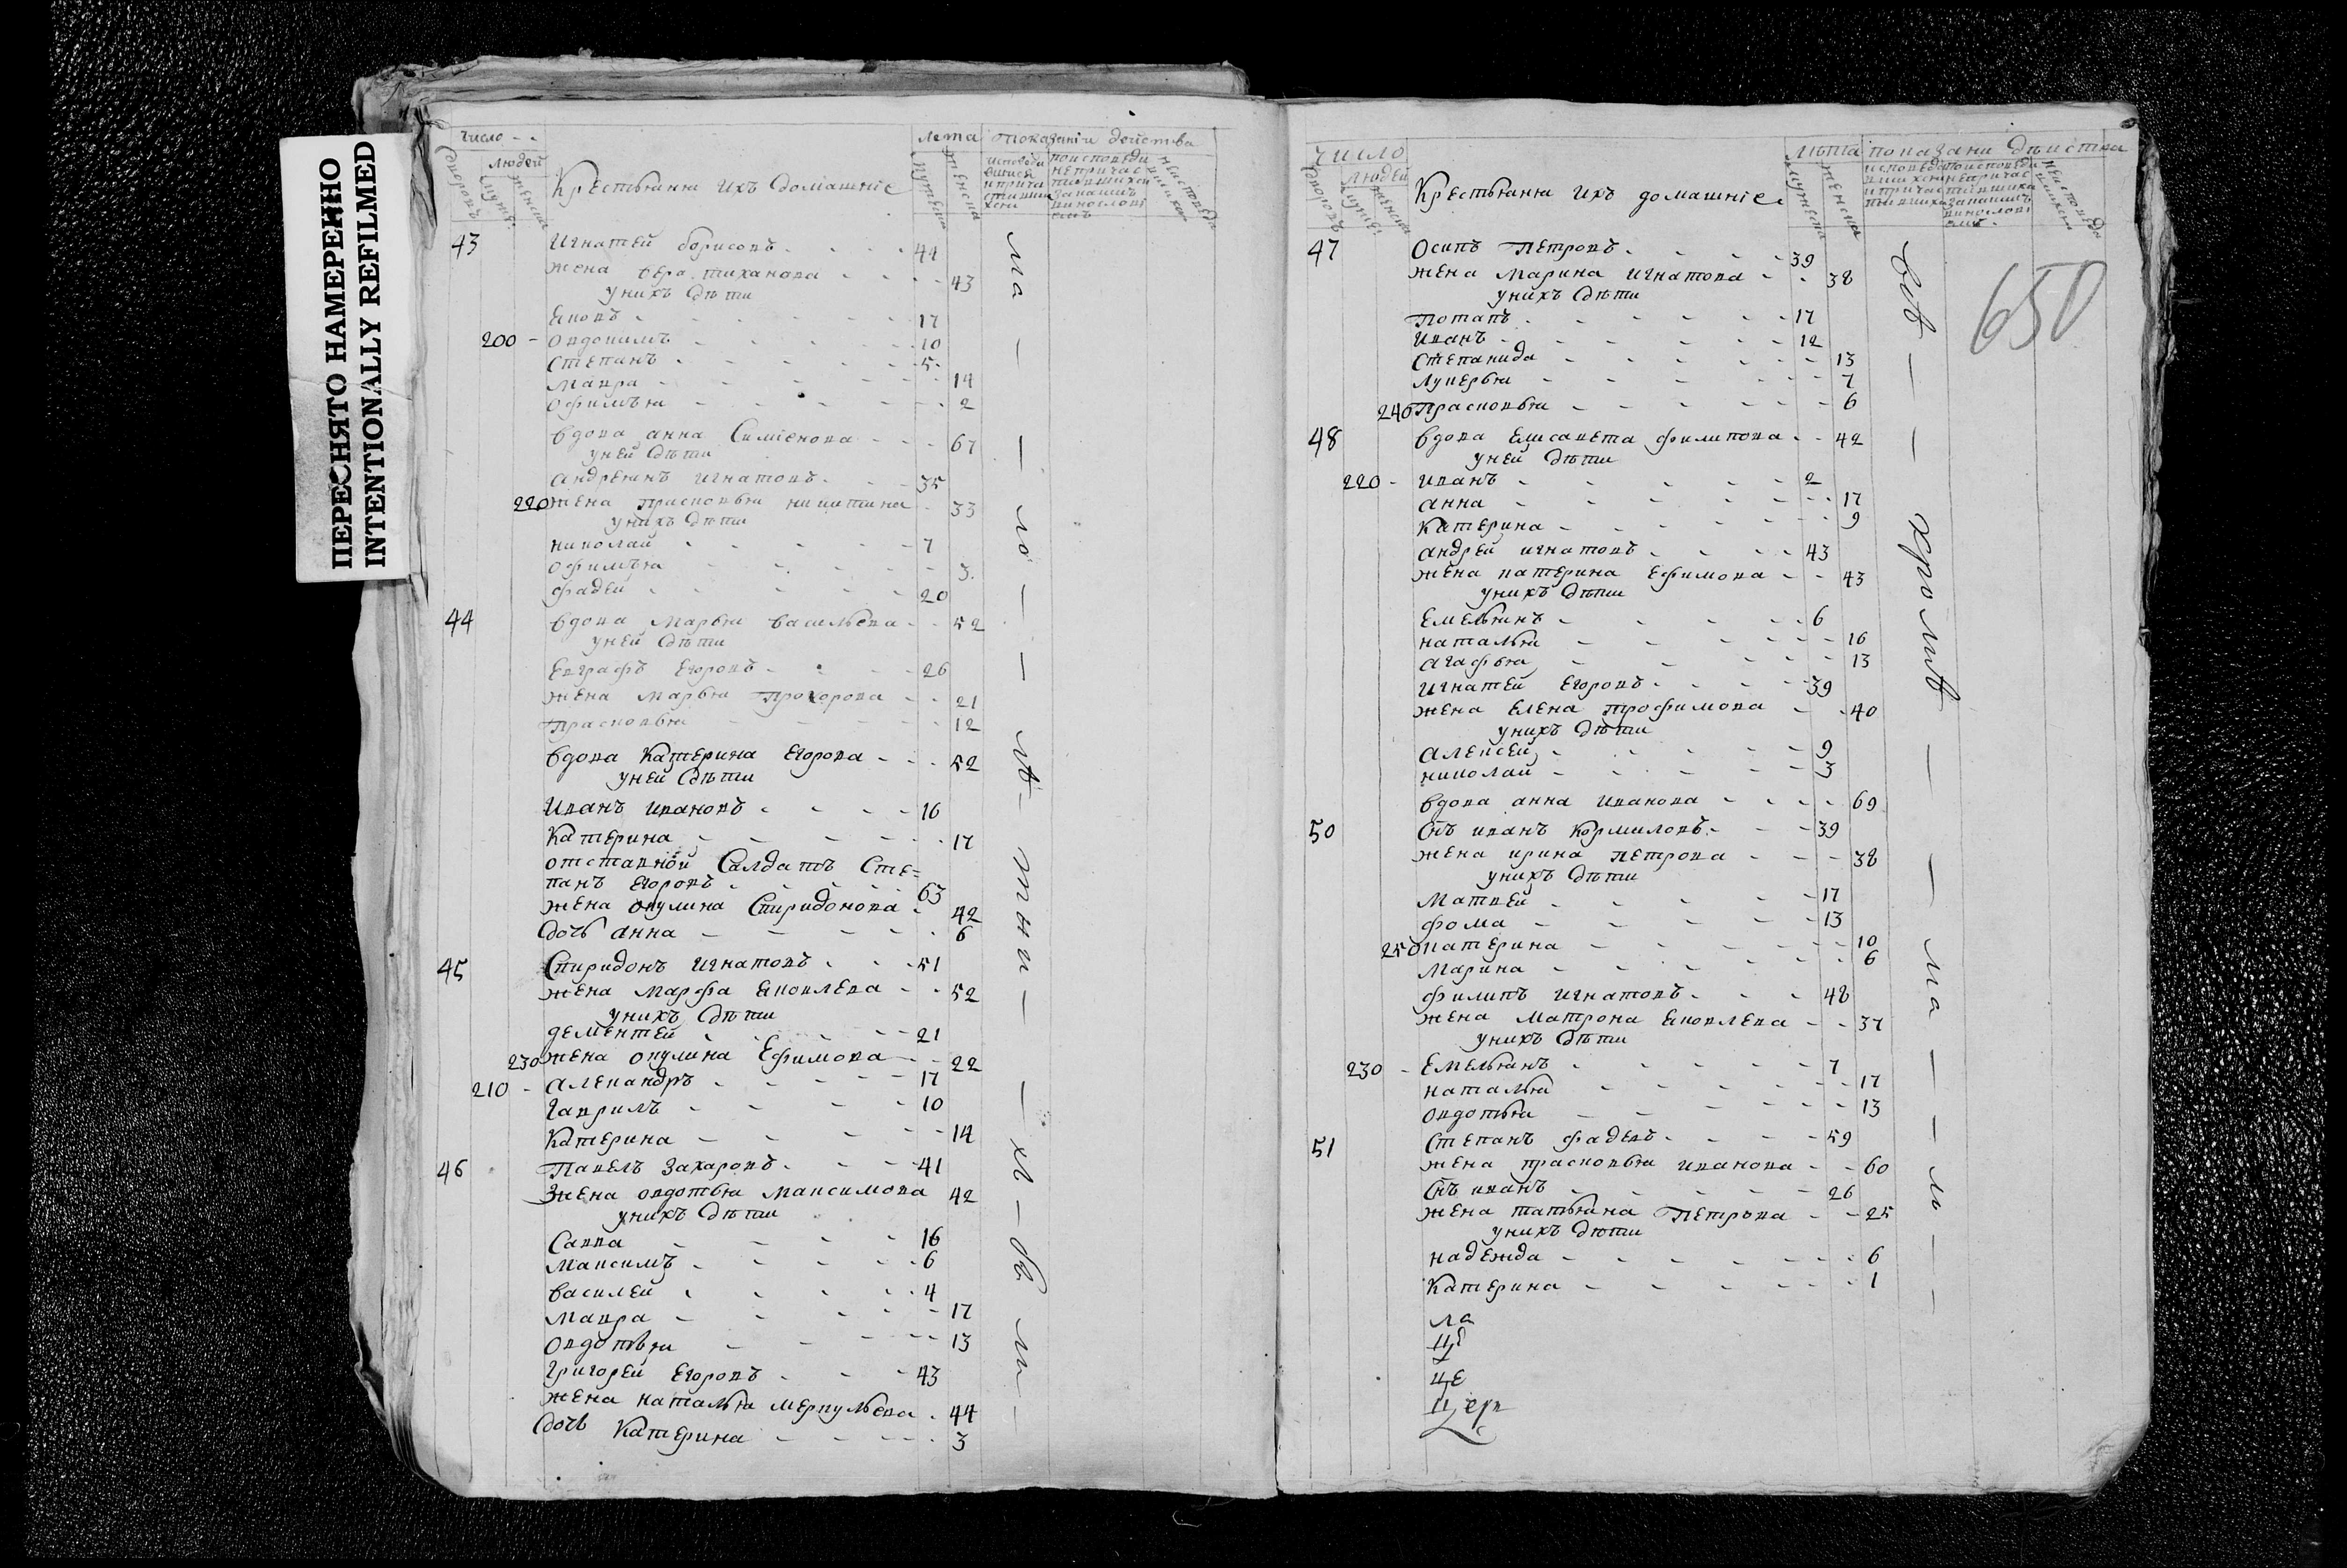 ПЕРЕСНЯТО НАМЕРЕННО
INTENTIONALLY REFILMED
Число
Лета показаніи действа
людей
Крестьяня ихъ домашніе
43 Игнатей борисовъ 44
жена вера тиханова 43
у нихъ дѣти
Яковъ 17
200 Овдокимъ 10
Степанъ 5
Мавра 14
Офимья 2
вдова анна Симіонова 67
у ней дѣти
андреянъ игнатовъ 35
220 жена прасковья никитина 33
у нихъ дѣти
николай 7
Офимья 3
фадей 20
44 вдова марья васильева 52
у ней дѣти
Евграфъ Егоровъ 26
жена марья Прохорова 21
Прасковья 12
вдова Катерина Егорова 52
у ней дѣти
Иванъ ивановъ 16
Катерина 17
отставной Салдатъ Сте=
панъ Егоровъ 63
жена окулина Спиридонова 42
дочь анна 6
45 Спиридонъ игнатовъ 51
жена марфа Яковлева 52
у нихъ дѣти
дементей 21
230 жена окулина Ефимова 22
210 александръ 17
Гаврилъ 10
Катерина 14
46 Павелъ Захаровъ 41
жена овдотья максимова 42
у нихъ дѣти
Савва 16
максимъ 6
василей 4
мавра 17
Овдотья 13
Григорей Егоровъ 43
жена наталья меркульева 44
дочь Катерина 3
число
лѣта показани дѣиства
людей
Крестьяня ихъ домашніе
650
47 Осипъ Петровъ 39
жена марина игнатова 38
у нихъ дѣти
Потапъ 17
иванъ 12
Степанида 13
лукерья 7
240 Прасковья 6
48 вдова Елисавета филипова 42
у ней дѣти
220 иванъ 2
анна 17
Катерина 9
андрей игнатовъ 43
жена катерина Ефимова 43
у нихъ дѣти
Емельянъ 6
наталья 16
агафья 13
игнатей Егоровъ 39
жена Елена трофимова 40
у нихъ дѣти
алексей 9
николай 3
вдова анна иванова 69
50 Снъ иванъ Кормиловъ 39
жена ирина петрова 38
у нихъ дѣти
Матвей 17
фома 13
250 катерина 10
Марина 6
филипъ игнатовъ 48
жена матрона Яковлева 37
у нихъ дѣти
230 Емельянъ 7
наталья 17
овдотья 13
51 Степанъ фадевъ 59
жена прасковья иванова 60
Снъ иванъ 26
жена татьяна Петрова 25
у нихъ дѣти
надежда 6
Катерина 1
ла
це
Церк